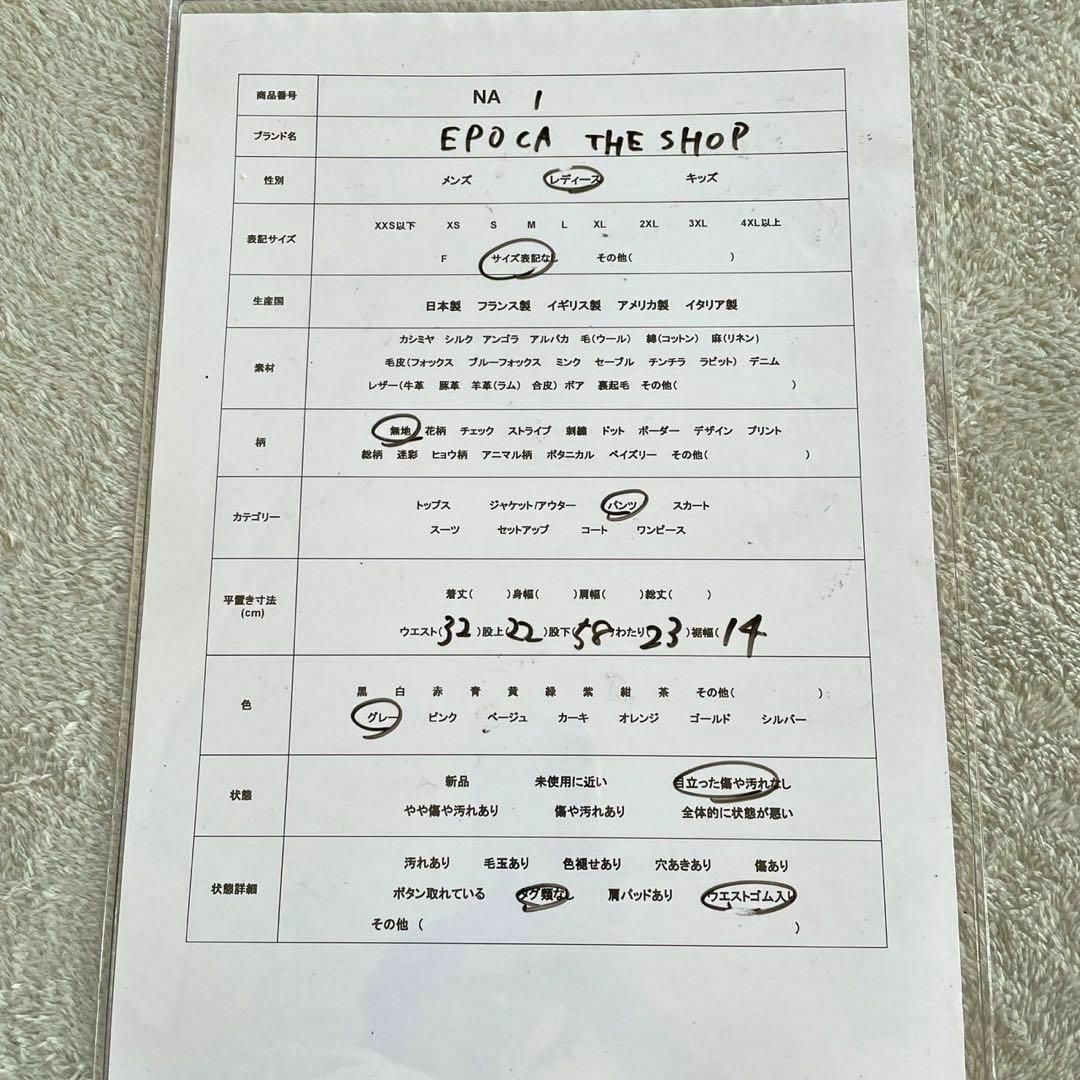 商品番号 NA 1
ブランド名 EPOCA THE SHOP
性別 メンズ レディース キッズ
表記サイズ
XXS以下 XS S M L XL 2XL 3XL 4XL以上
F サイズ表記なし その他( )
生産国 日本製 フランス製 イギリス製 アメリカ製 イタリア製
素材
カシミヤ シルク アンゴラ アルパカ 毛(ウール) 綿(コットン) 麻(リネン)
毛皮(フォックス ブルーフォックス ミンク セーブル チンチラ ラビット) デニム
レザー(牛革 豚革 羊革(ラム) 合皮) ボア 裏起毛 その他( )
柄
無地 花柄 チェック ストライプ 刺繍 ドット ボーダー デザイン プリント
総柄 迷彩 ヒョウ柄 アニマル柄 ボタニカル ペイズリー その他( )
カテゴリー
トップス ジャケット/アウター パンツ スカート
スーツ セットアップ コート ワンピース
平置き寸法
(cm)
着丈( )身幅( )肩幅( )総丈( )
ウエスト(32)股上(22)股下(58)わたり(23)裾幅(14
色
黒 白 赤 青 黄 緑 紫 紺 茶 その他( )
グレー ピンク ベージュ カーキ オレンジ ゴールド シルバー
状態
新品 未使用に近い 目立った傷や汚れなし
やや傷や汚れあり 傷や汚れあり 全体的に状態が悪い
状態詳細
汚れあり 毛玉あり 色褪せあり 穴あきあり 傷あり
ボタン取れている タグ類なし 肩パッドあり ウエストゴム入り
その他 ( )